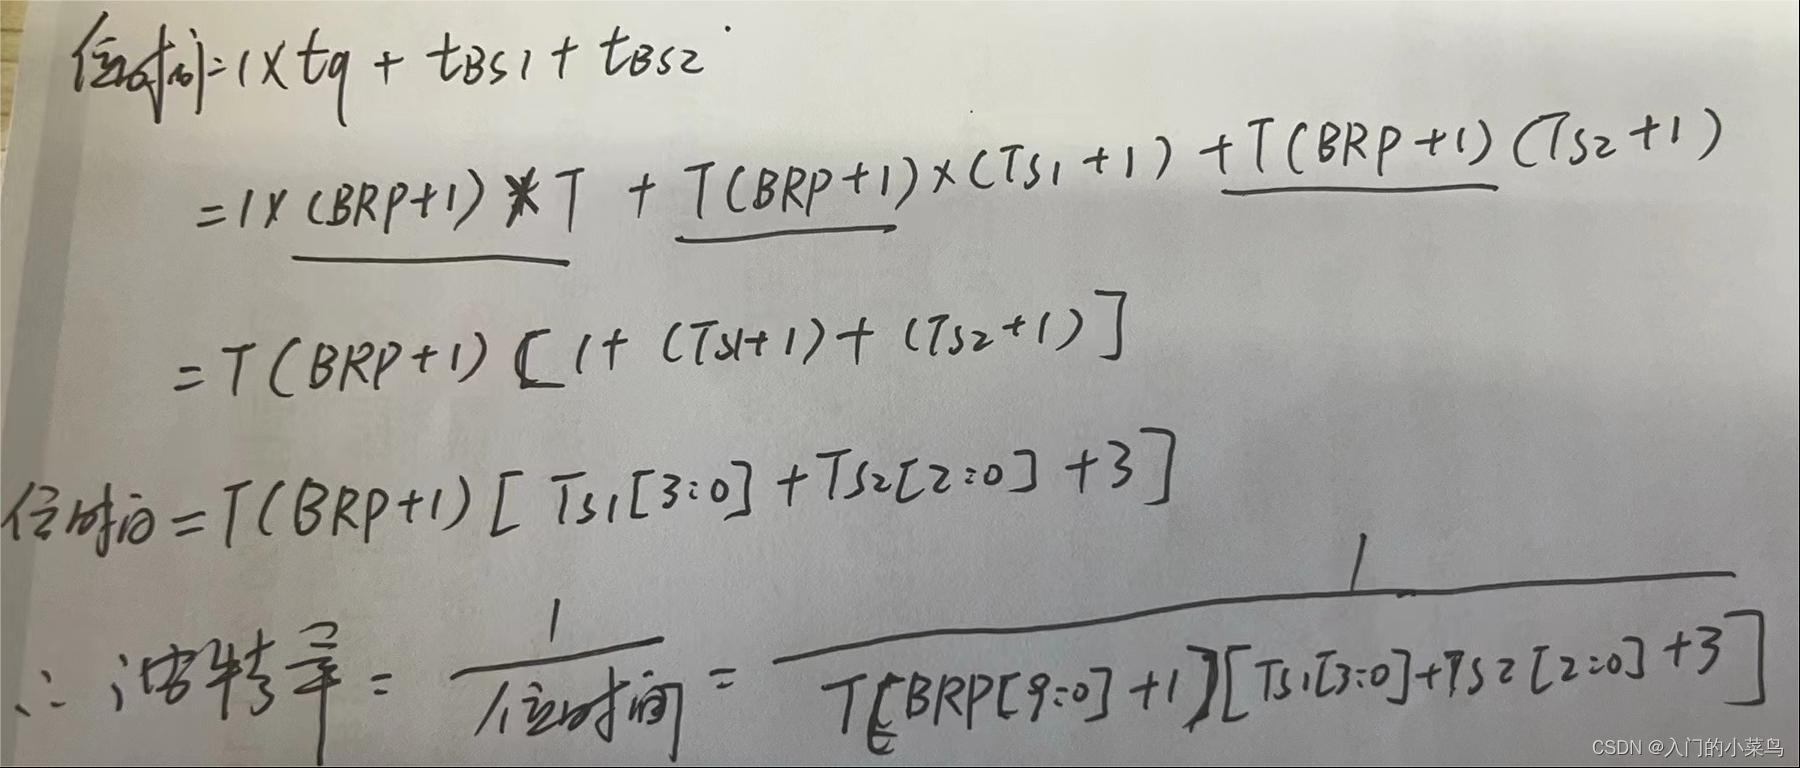 位时间=1×tq + tBS1 + tBS2
=1×(BRP+1)*T + T(BRP+1)×(TS1+1)+T(BRP+1)(TS2+1)
=T(BRP+1)[1+(TS1+1)+(TS2+1)]
位时间=T(BRP+1)[TS1[3:0]+TS2[2:0]+3]
∴波特率=1/位时间=1/T[BRP[9:0]+1][TS1[3:0]+TS2[2:0]+3]
CSDN @入门的小菜鸟